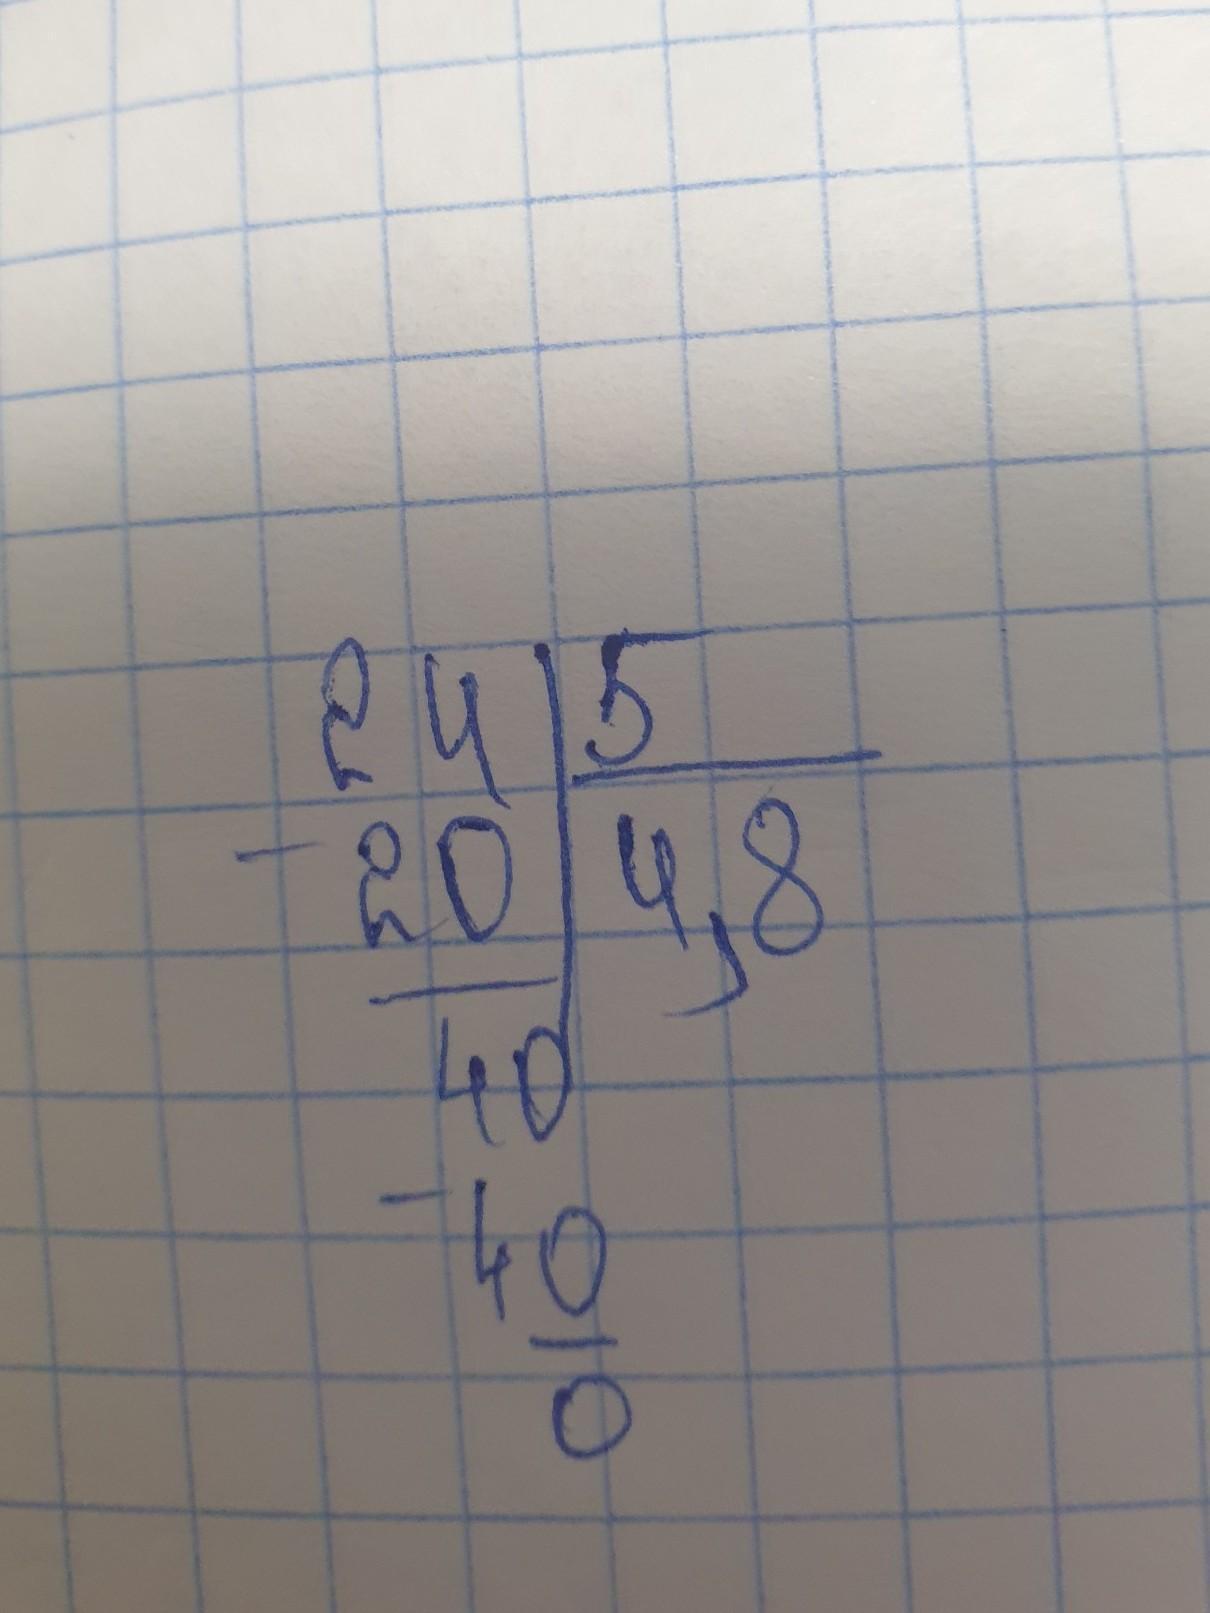 24 5
- 20 4,8
40
- 40
0